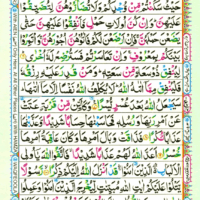 حَيْثُ سَكَنْتُمْ مِّنْ وُّجْدِكُمْ وَلَا تُضَآرُّوْهُنَّ لِتُضَيِّقُوْا
عَلَيْهِنَّ ؕ وَاِنْ كُنَّ اُولَاتِ حَمْلٍ فَاَنْفِقُوْا عَلَيْهِنَّ حَتّٰى
يَضَعْنَ حَمْلَهُنَّ ۚ فَاِنْ اَرْضَعْنَ لَكُمْ فَاٰتُوْهُنَّ اُجُوْرَهُنَّ ۚ وَاْتَمِرُوْا
بَيْنَكُمْ بِمَعْرُوْفٍ ۚ وَاِنْ تَعَاسَرْتُمْ فَسَتُرْضِعُ لَهٗۤ اُخْرٰى
لِيُنْفِقْ ذُوْ سَعَةٍ مِّنْ سَعَتِهٖ ؕ وَمَنْ قُدِرَ عَلَيْهِ رِزْقُهٗ
فَلْيُنْفِقْ مِمَّاۤ اٰتٰىهُ اللّٰهُ ؕ لَا يُكَلِّفُ اللّٰهُ نَفْسًا اِلَّا مَاۤ اٰتٰىهَا ؕ
سَيَجْعَلُ اللّٰهُ بَعْدَ عُسْرٍ يُّسْرًا وَكَاَيِّنْ مِّنْ قَرْيَةٍ عَتَتْ
عَنْ اَمْرِ رَبِّهَا وَرُسُلِهٖ فَحَاسَبْنٰهَا حِسَابًا شَدِيْدًا ۙ وَّعَذَّبْنٰهَا
عَذَابًا نُّكْرًا فَذَاقَتْ وَبَالَ اَمْرِهَا وَكَانَ عَاقِبَةُ اَمْرِهَا
خُسْرًا اَعَدَّ اللّٰهُ لَهُمْ عَذَابًا شَدِيْدًا ۙ فَاتَّقُوا اللّٰهَ يٰۤاُولِى
الْاَلْبَابِ ۛۖۚ الَّذِيْنَ اٰمَنُوْا ۛؕ قَدْ اَنْزَلَ اللّٰهُ اِلَيْكُمْ ذِكْرًا رَّسُوْلًا
يَّتْلُوْا عَلَيْكُمْ اٰيٰتِ اللّٰهِ مُبَيِّنٰتٍ لِّيُخْرِجَ الَّذِيْنَ اٰمَنُوْا وَعَمِلُوا